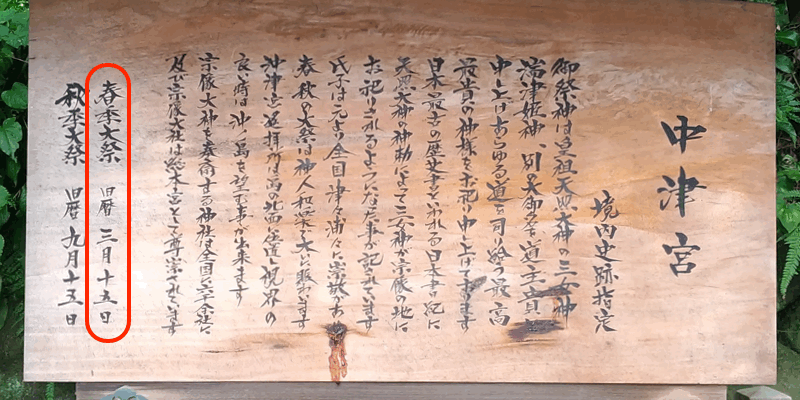 中津宮
境内史跡指定
御祭神は皇祖天照大神の三女神
湍津姫神、別の大御名を道主貴と
申し上げあらゆる道を司り給う最高
最貴の神様をお祀り申し上げております
日本最古の歴史書といわれる日本書紀に
天照大神の神勅によって三女神が宗像の地に
お祀りされるようになった事が記されています
氏子は元より全国津々浦々に崇敬があり
春秋の大祭は神人和楽で大いに賑わいます
沖津宮遥拝所は島の北面に位置し視界の
良い時は沖ノ島を望む事が出来ます
宗像大神を奉斎する神社は全国に六千余社に
及び宗像大社は総本宮として尊崇されています
春季大祭 旧暦 三月十五日
秋季大祭 旧暦 九月十五日